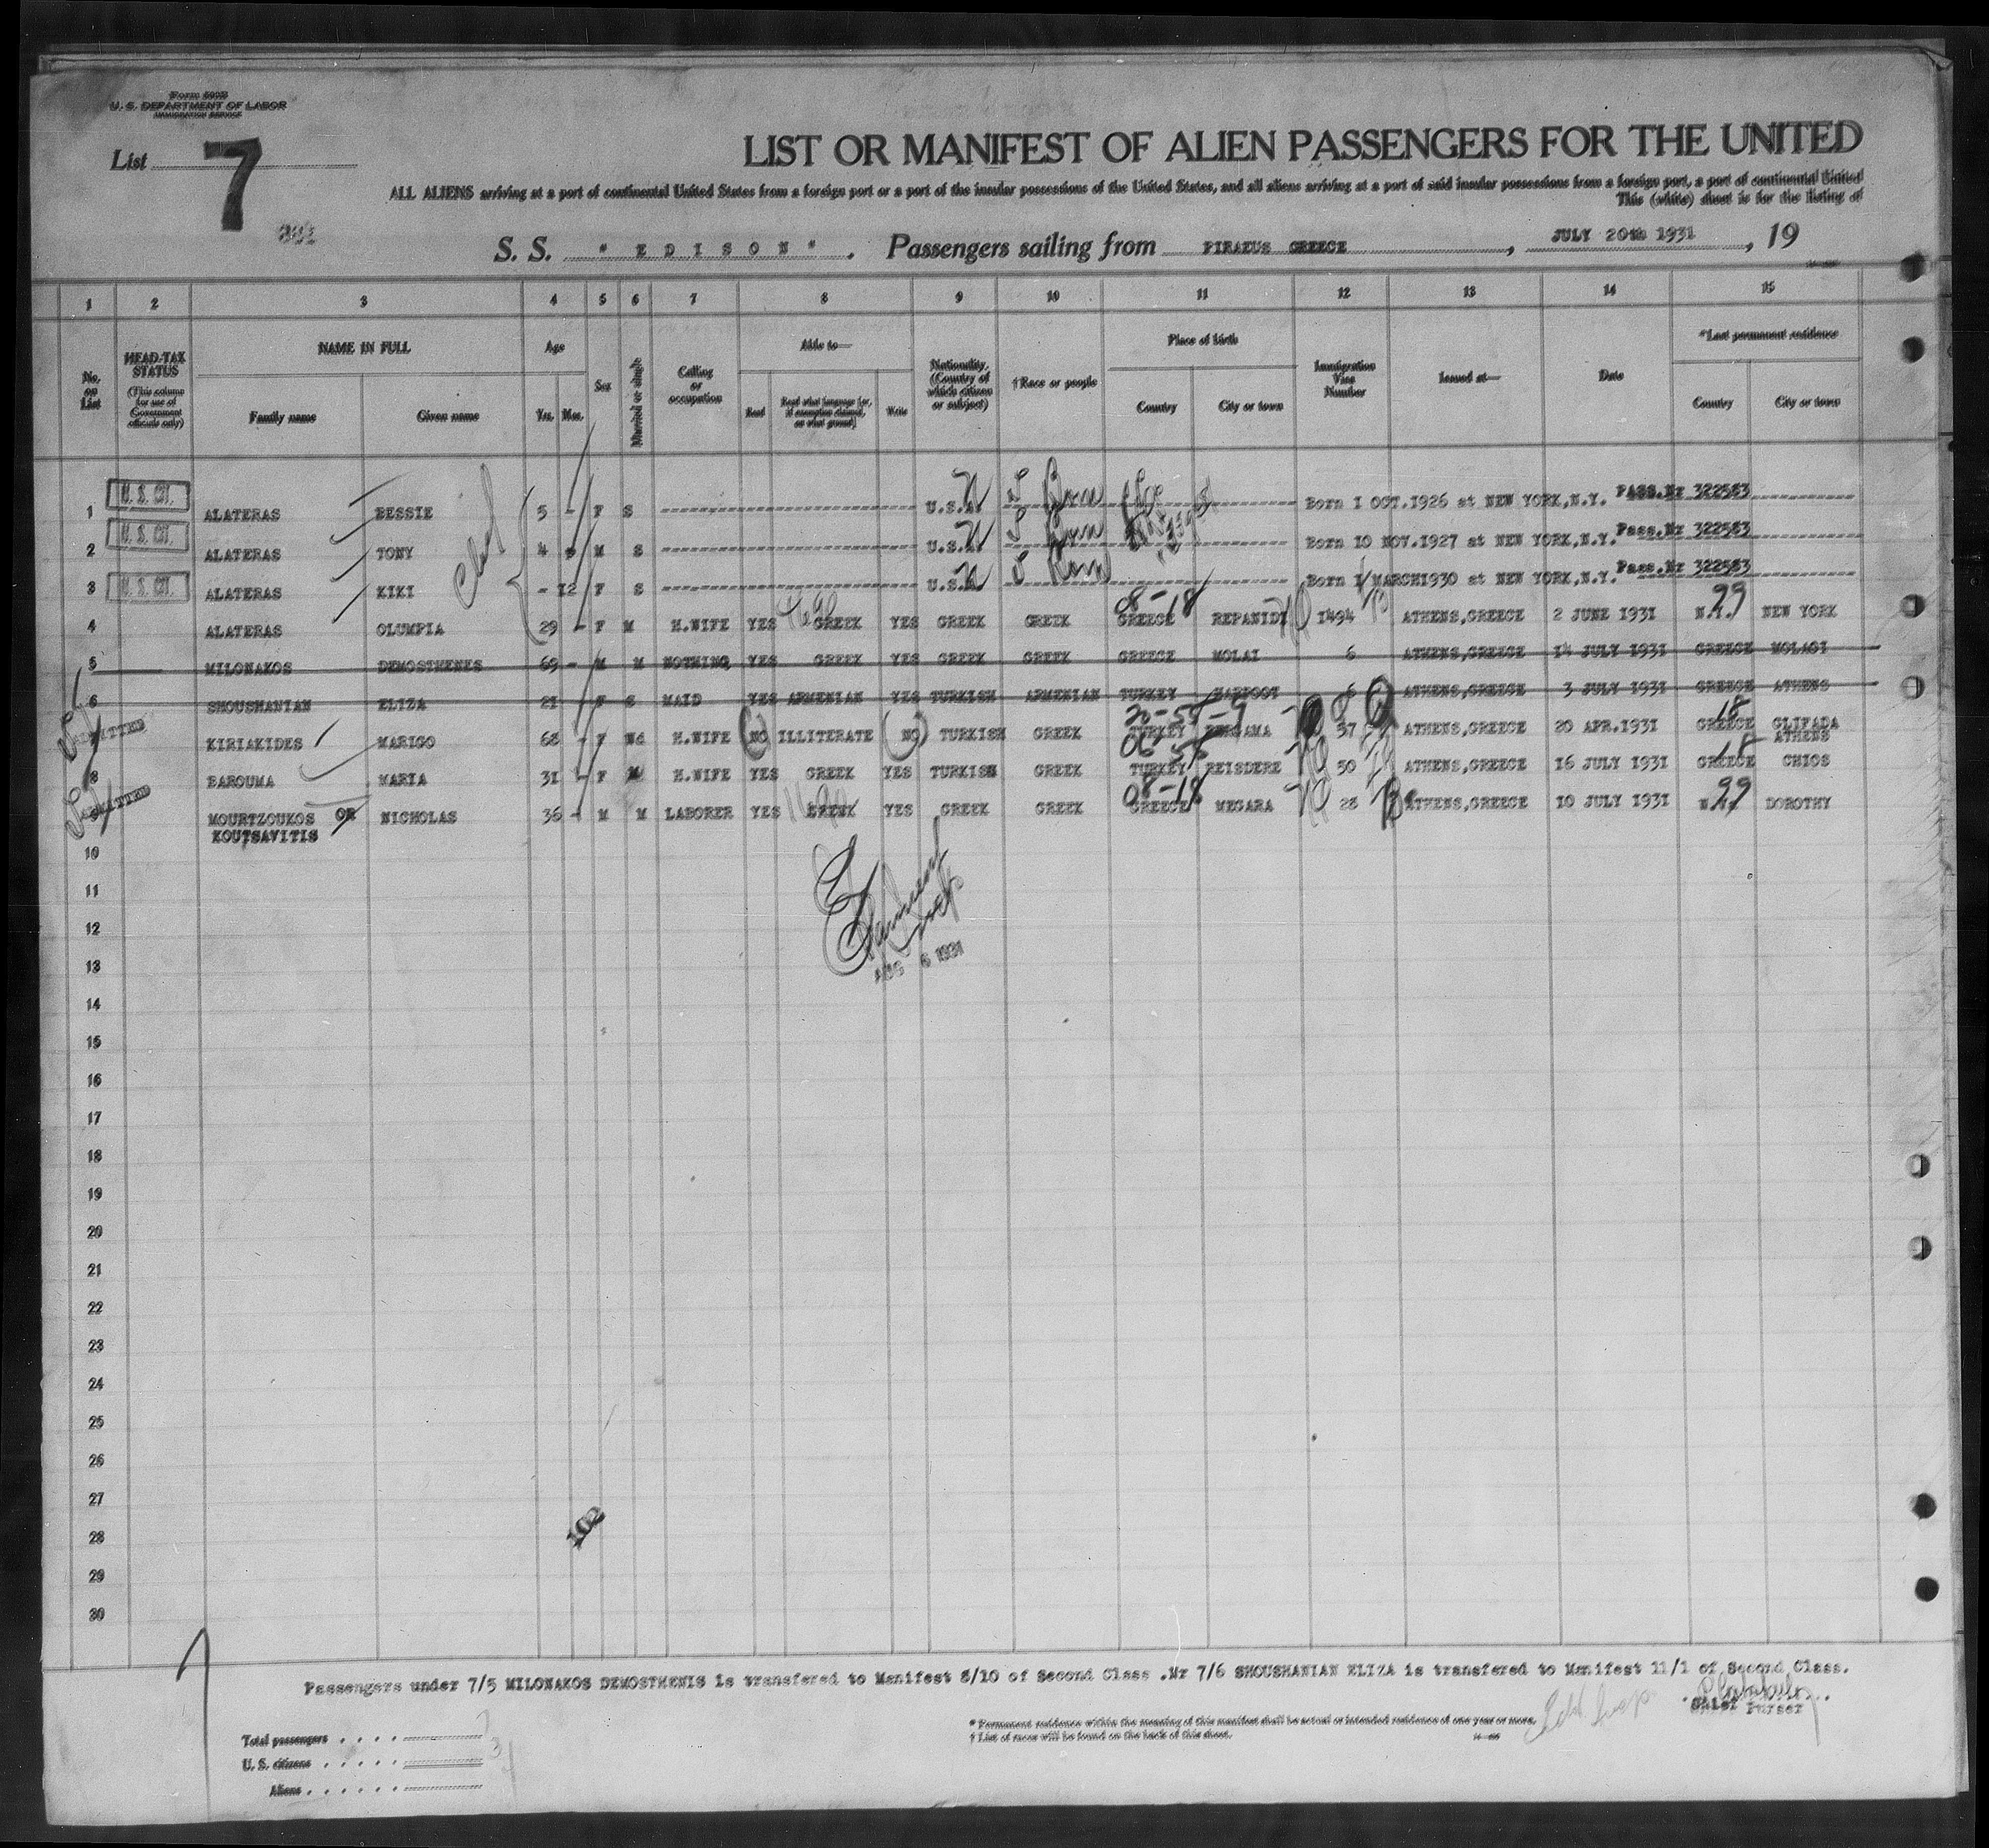 Form 500B
U. S. DEPARTMENT OF LABOR
IMMIGRATION SERVICE
List 7
LIST OR MANIFEST OF ALIEN PASSENGERS FOR THE UNITED
ALL ALIENS arriving at a port of continental United States from a foreign port or a port of the insular possessions of the United States, and all aliens arriving at a port of said insular possessions from a foreign port, a port of continental United
This (white) sheet is for the listing of
S. S. " E D I S O N " . Passengers sailing from PIRAEUS GREECE , JULY 20th 1931 , 19
1 2 3 4 5 6 7 8 9 10 11 12 13 14 15
No. on List
HEAD-TAX STATUS (This column for use of Government officials only)
NAME IN FULL Family name Given name
Age Yrs. Mos.
Sex
Married or single
Calling or occupation
Able to— Read Read what language (or, if exemption claimed, on what ground) Write
Nationality. (Country of which citizen or subject)
†Race or people
Place of birth Country City or town
Immigration Visa Number
Issued at—
Date
*Last permanent residence Country City or town
1 U. S. CIT. ALATERAS BESSIE 5 - F S U.S.A. Born 1 OCT.1926 at NEW YORK,N.Y. PASS.Nr 322583
2 U. S. CIT. ALATERAS TONY 4 M S U.S.A. Born 10 NOV.1927 at NEW YORK,N.Y. Pass.Nr 322583
3 U. S. CIT. ALATERAS KIKI - 12 F S U.S.A. Born 1 MARCH1930 at NEW YORK,N.Y. Pass.Nr 322583
4 ALATERAS OLUMPIA 29 - F M H.WIFE YES GREEK YES GREEK GREEK 08-18 GREECE REPANIDI 1494 ATHENS,GREECE 2 JUNE 1931 99 N.Y. NEW YORK
5 MILONAKOS DEMOSTHENES 69 - M M NOTHING YES GREEK YES GREEK GREEK GREECE MOLAI 6 ATHENS,GREECE 14 JULY 1931 GREECE MOLAOI
6 SHOUSHANIAN ELIZA 21 - F S MAID YES ARMENIAN YES TURKISH ARMENIAN TURKEY HARPOOT 6 ATHENS,GREECE 3 JULY 1931 GREECE ATHENS
ADMITTED KIRIAKIDES MARIGO 68 - F Wd H.WIFE NO ILLITERATE NO TURKISH GREEK TURKEY BERGAMA 57 ATHENS,GREECE 20 APR.1931 18 GREECE GLIFADA ATHENS
8 BAROUMA MARIA 31 - F M H.WIFE YES GREEK YES TURKISH GREEK TURKEY REISDERE 50 ATHENS,GREECE 16 JULY 1931 18 GREECE CHIOS
ADMITTED MOURTZOUKOS OR NICHOLAS 36 - M M LABORER YES GREEK YES GREEK GREEK 08-18 GREECE MEGARA 28 ATHENS,GREECE 10 JULY 1931 99 DOROTHY
KOUTSAVITIS
10
11
12
13
AUG 6 1931
14
15
16
17
18
19
20
21
22
23
24
25
26
27
28
102
29
30
Passengers under 7/5 MILONAKOS DEMOSTHENIS is transfered to Manifest 8/10 of Second Class .Nr 7/6 SHOUSHANIAN ELIZA is transfered to Manifest 11/1 of Second Class.
Chief Purser
* Permanent residence within the meaning of this manifest shall be actual or intended residence of one year or more.
† List of races will be found on the back of this sheet.
Total passengers . . . . 7
U. S. citizens . . . . . 3
Aliens . . . . . . 4